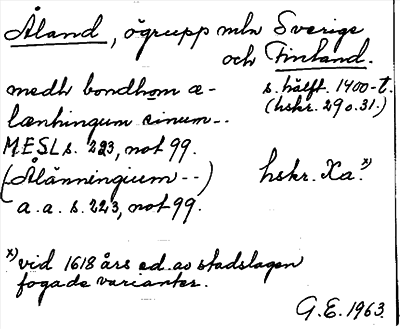 Åland, ögrupp mln Sverige
och Finland.
medh bondhom æ-
lænhingum sinum--
s. hälft. 1400-t.
(hskr. 29 o. 31.)
MESL s. 223, not 99.
(Ålänningium--)
hskr. Xa.x)
a.a. s. 223, not 99.
x) vid 1618 års ed. av stadslagen
fogade varianter.
G.E. 1963.